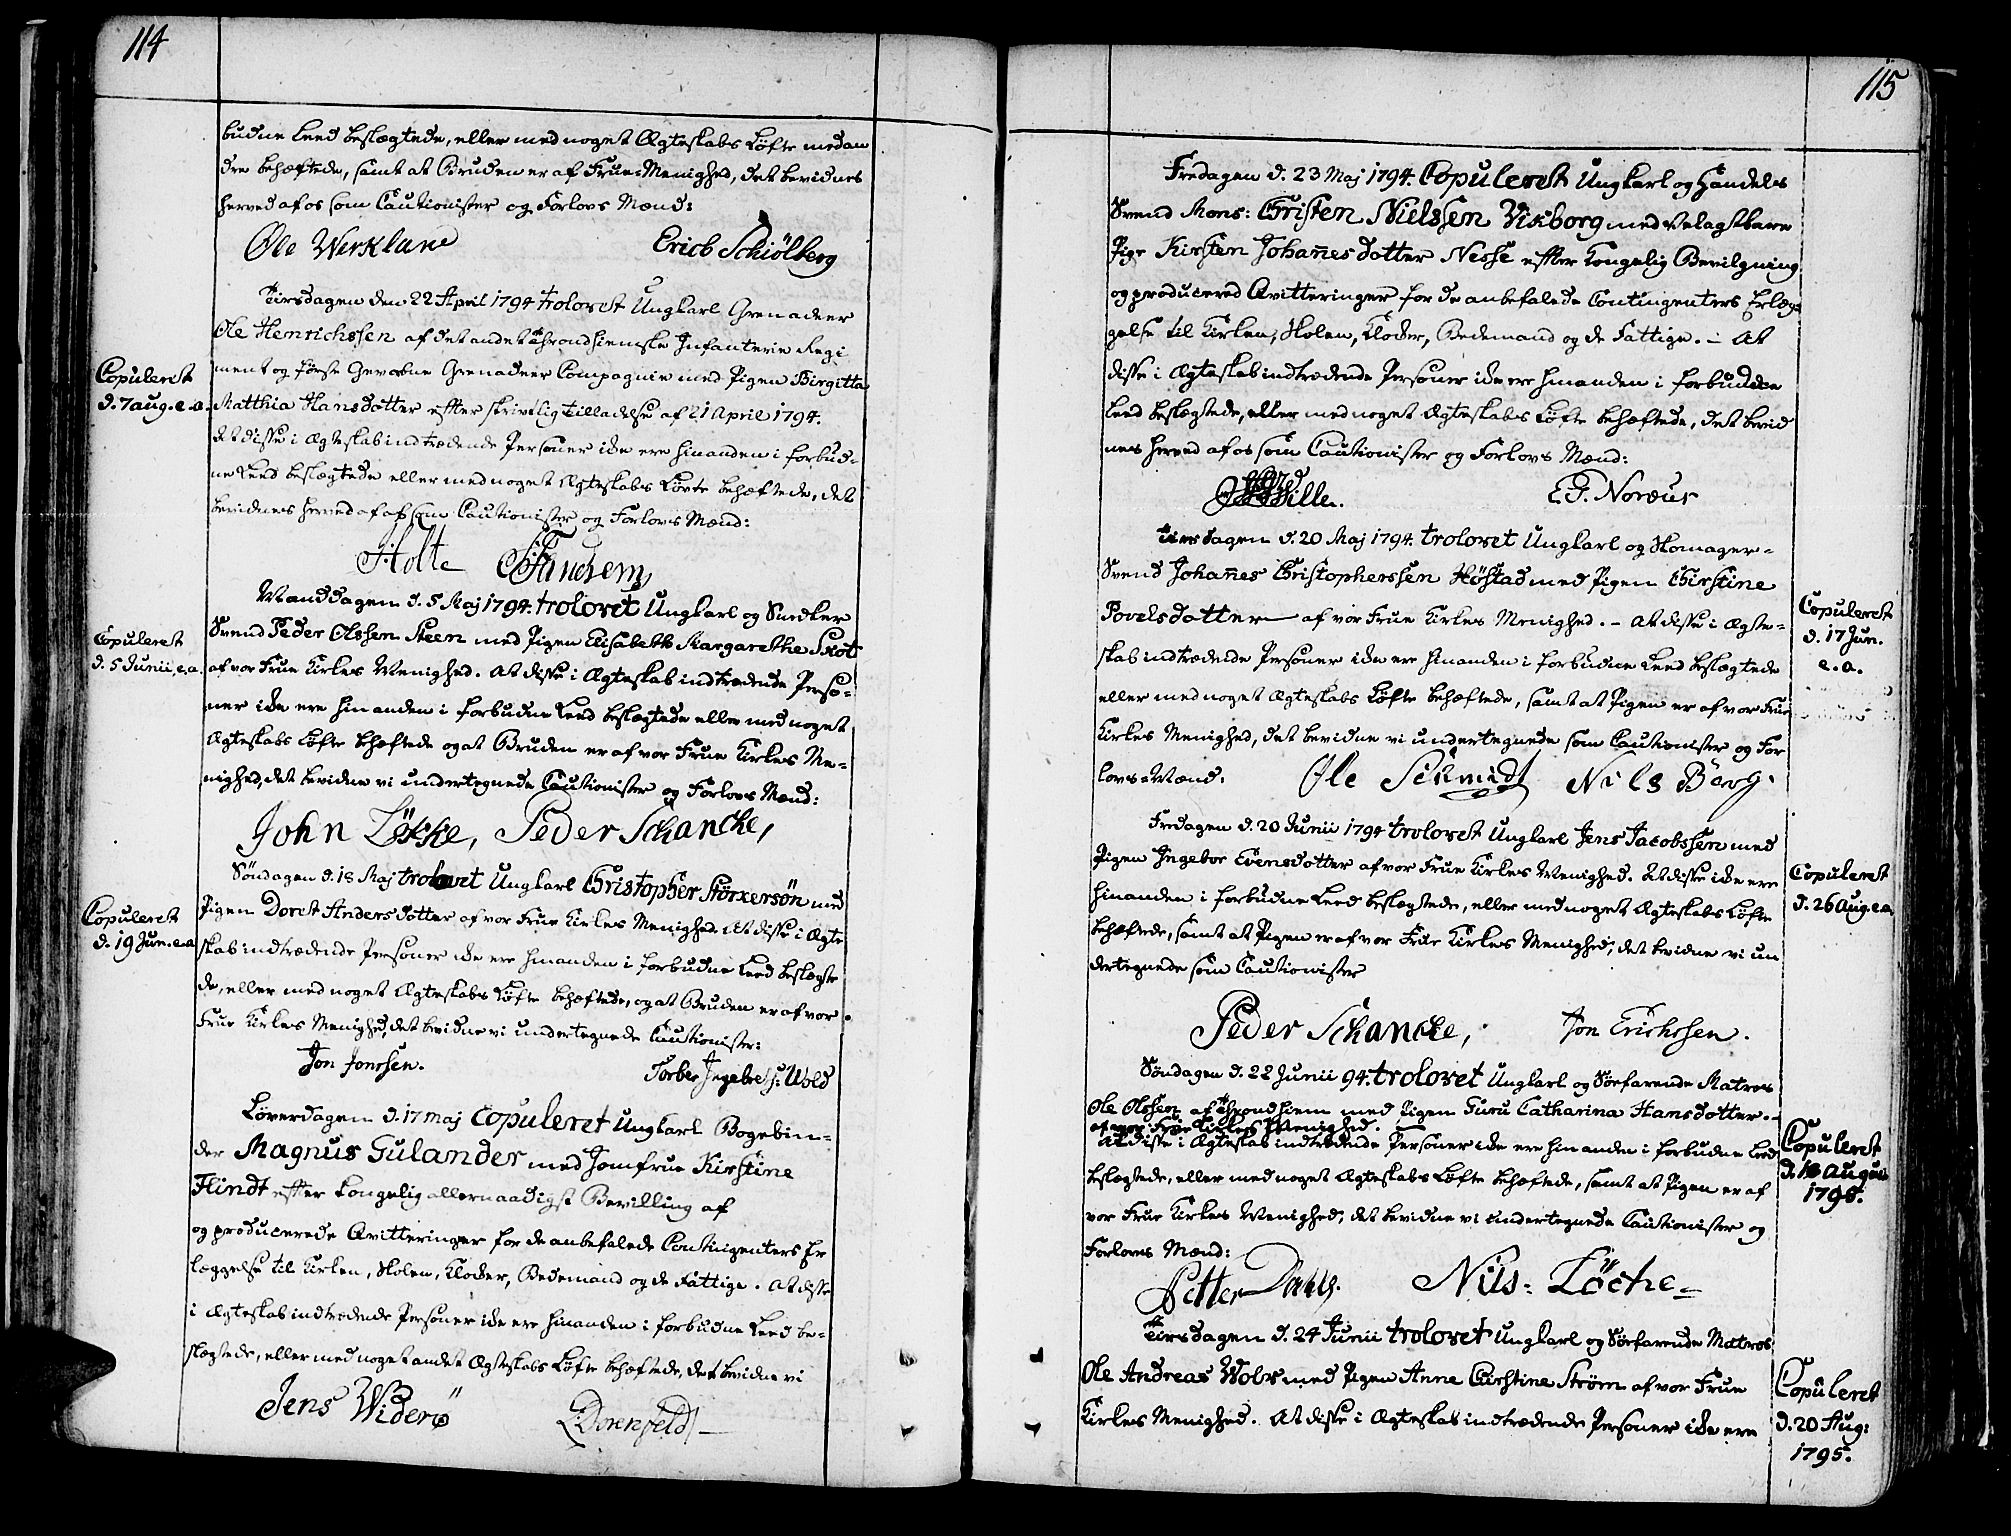 114
budne Leed beslægtede, eller med noget Ægteskabs Løfte med an
dre behæftede, samt at Bruden er af Frue Menighed, det bevidnes
herved af os som Cautionister og Forlovs Mænd:
Ole Werklane Erich Schiölberg
Tirsdagen den 22 April 1794 trolovet Ungkarl Grenadeer
Ole Henrichssen af det andet Throndhiemske Infanterie Regi
ment og første Gevorbne Grenadeer Compagnie med Pigen Birgitta
Copuleret
d. 7 aug. e. a.
Matthia Hansdotter efter skrivtlig tilladelse af 21 April 1794.
At disse i Ægteskab indtrædende Personer ikke ere hinanden i forbud-
ne Leed beslægtede eller med noget Ægteskabs Løvte behæftede, det
bevidnes herved af os som Cautionister og Forlovs Mænd:
Holte
Mandagen d. 5 Maj 1794. trolovet Ungkarl og Snedker
Svend Peder Olssen Steen med Pigen Elisabeth Margarethe Skot
Copuleret
d. 5 Junii, e. a.
af vor Frue Kirkes Menighed. At disse i Ægteskab indtrædende Perso-
ner ikke ere hinanden i forbudne Leed beslægtede eller med noget
Ægteskabs Løfte behæftede og at Bruden er af vor Frue Kirkes Me-
nighed, det bevidne vi undertegnede Cautionister og Forlovs Mænd:
John Løkke, Peder Schancke,
Søndagen d. 18 Maj trolovet Ungkarl Christopher Størkersön med
Copuleret
d. 19 Jun. e. a
Pigen Doret Andersdotter af vor Frue Kirkes Menighed. At disse i Ægte
skab indtrædende Personer ikke ere hinanden i forbudne Leed beslægte
de, eller med noget Ægteskabs Løfte behæftede, og at Bruden er af vor
Frue Kirkes Menighed, det bevidne vi undertegnede Cautionister:
Jon Jonssen. Torber Ingebretß: Wold
Løverdagen d. 17 maj Copuleret Ungkarl Bogebin-
der Magnus Gulander med Jomfrue Kirstine
Flindt efter kongelig allernaadigst Bevilling af
og producerede Qvitteringer for de anbefalede Contingenters Er
læggelse til Kirken, Skolen, Klocker, Bedemand og de Fattige. At disse
i Ægteskab indtrædende Personer ikke ere hinanden i forbudne Leed be-
slægtede, eller med noget andet Ægteskabs Løfte behæftede, det bevidne vi
Jens Widerö Dorenfeldt
115
Fredagen d. 23 Maj 1794. Copuleret Ungkarl og Handels
Svend Mons: Christen Nielssen Vikborg med Velagtbare
Pige Kirsten Johannesdotter Nesse efter Kongelig Bevilgning
og producered Qvitteringer for de anbefalede Contingenters Erlæg-
gelse til Kirken, Skolen, Klocker, Bedemand og de Fattige. – At
disse i Ægteskab indtrædende Personer ikke ere hinanden i forbudne
Leed beslægtede, eller med noget Ægteskabs Løfte behæftede, det bevid
nes herved af os som Cautionister og Forlovs Mænd:
Hille. E. J. Noræus
Tirsdagen d. 20 Maj 1794. trolovet Ungkarl og Skomager-
Svend Johannes Christopherssen Höstad med Pigen Chirstine
Povelsdotter af vor Frue Kirkes Menighed. – At disse i Ægte-
Copuleret
d. 17 Jun.
e. a.
skab indtrædende Personer ikke ere hinanden i forbudne Leed beslægtede
eller med noget Ægteskabs Løfte behæftede, samt at Pigen er af vor Frue
Kirkes Menighed, det bevidne vi undertegnede som Cautionister og For
lovs Mænd: Ole Schmidt Nils Berg.
Fredagen d. 20 Junii 1794 trolovet Ungkarl Jens Jacobssen med
Pigen Ingebor Evensdotter af vor Frue Kirkes Menighed. At disse ikke ere
Copuleret
d. 26 Aug. e. a.
hinanden i forbudne Leed beslægtede, eller med noget Ægteskabs Løfte
behæftede, samt at Pigen er af vor Frue Kirkes Menighed, det bevidne vi un
dertegnede som Cautionister
Peder Schancke, Jon Erichssen.
Søndagen d. 22 Junii 94. trolovet Ungkarl og Søefarende Matros
Ole Olssen af Throndhiem med Pigen Guru Catharina Hansdotter. –
af vor Frue Kirkes Menighed.
At disse i Ægteskab indtrædende Personer ikke ere hinanden i forbudne Leed
Copuleret
d. 18 August
1795.
beslægtede, eller med noget Ægteskabs Løfte behæftede, samt at Pigen er af
vor Frue Kirkes Menighed, det bevidne vi undertegnede Cautionister og
Forlovs Mænd:
Petter Nils: Löche
Tirsdagen d. 24 Junii trolovet Ungkarl og Søefarende Matros
Ole Andreas Wobs med Pigen Anne Chirstine Strøm af vor Frue
Copuleret
d. 20 Aug:
1795.
Kirkes Menighed. At disse i Ægteskab indtrædende Personer ikke ere